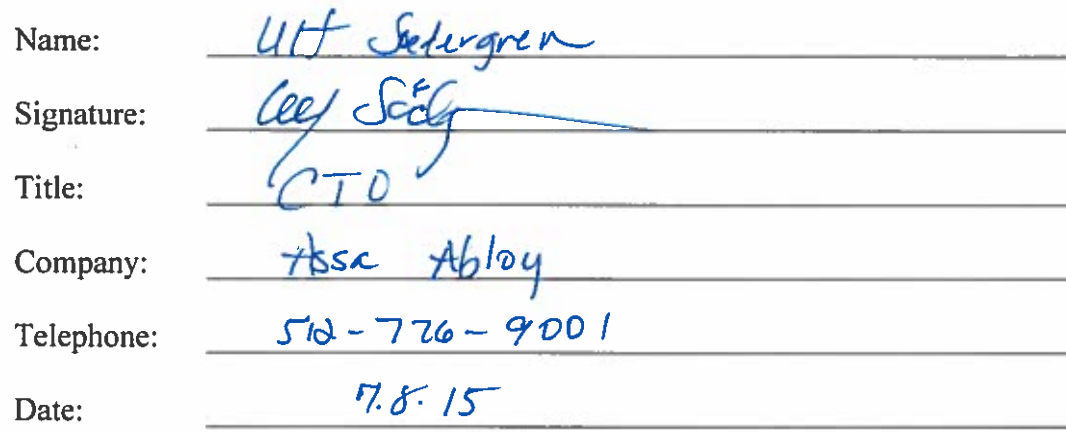 Name: Ulf Sodergren
Signature:
Title: CTO
Company: Assa Abloy
Telephone: 512-776-9001
Date: 7.8.15